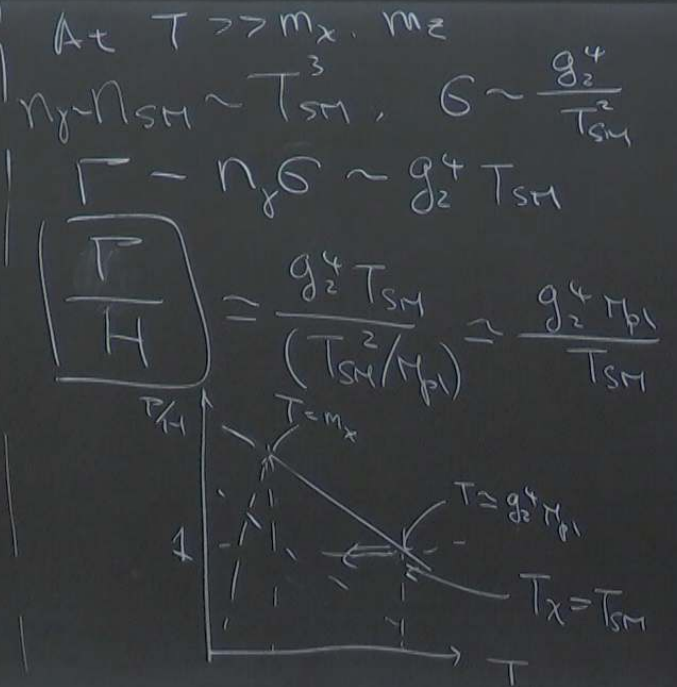 At T >> m_x, m_z
n_χ ~ n_SM ~ T_SM^3, σ ~ g_2^4 / T_SM^2
Γ ~ n_χ σ ~ g_2^4 T_SM
Γ/H ≃ g_2^4 T_SM / (T_SM^2/M_pl) ≃ g_2^4 M_pl / T_SM
Γ/H
T=m_x
T≃g_2^4 M_pl
1
T_χ=T_SM
T